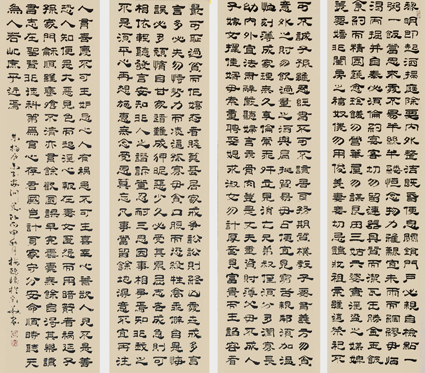 黎明即起洒掃庭除要內外整潔既昏便息關鎖門戶必親自檢點一
粥一飯當思來處不易半絲半縷恒念物力維艱宜未雨而綢繆毋臨
渴而掘井自奉必須儉約宴客切勿留連器具質而潔瓦缶勝金玉飲
食約而精園蔬愈珍饈勿營華屋勿謀良田三姑六婆實淫盜之媒婢
美妾嬌非閨房之福奴僕勿用俊美妻妾切忌艷妝祖宗雖遠祭祀不
可不誠子孫雖愚經書不可不讀居身務期質樸教子要有義方勿貪
意外之財勿飲過量之酒與肩挑貿易毋佔便宜見窮苦親鄰須加溫
恤刻薄成家理無久享倫常乖舛立見消亡兄弟叔侄須分多潤寡長
幼內外宜法肅辭嚴聽婦言乖骨肉豈是丈夫重資財薄父母不成人
子嫁女擇佳婿毋索重聘娶媳求淑女勿計厚奩見富貴而生諂容者
最可恥遇貧窮而作驕態者賤莫甚居家戒爭訟訟則終凶處世戒多言
言多必失勿恃勢力而凌逼孤寡毋貪口腹而恣殺生禽乖僻自是悔
誤必多頹惰自甘家道難成狎暱惡少久必受其累屈志老成急則可
相依輕聽發言安知非人之譖訴當忍耐三思因事相爭焉知非我之
不是須平心再想施惠無念受恩莫忘凡事當留餘地得意不宜再往
人有喜慶不可生妒忌心人有禍患不可生喜幸心善欲人見不是真善
惡恐人知便是大惡見色而起淫心報在妻女匿怨而用暗箭禍延子
孫家門和順雖饔飧不濟亦有餘歡國課早完即囊橐無餘自得至樂讀
書志在聖賢非徒科第為官心存君國豈計身家守分安命順時聽天
為人若此庶乎近焉